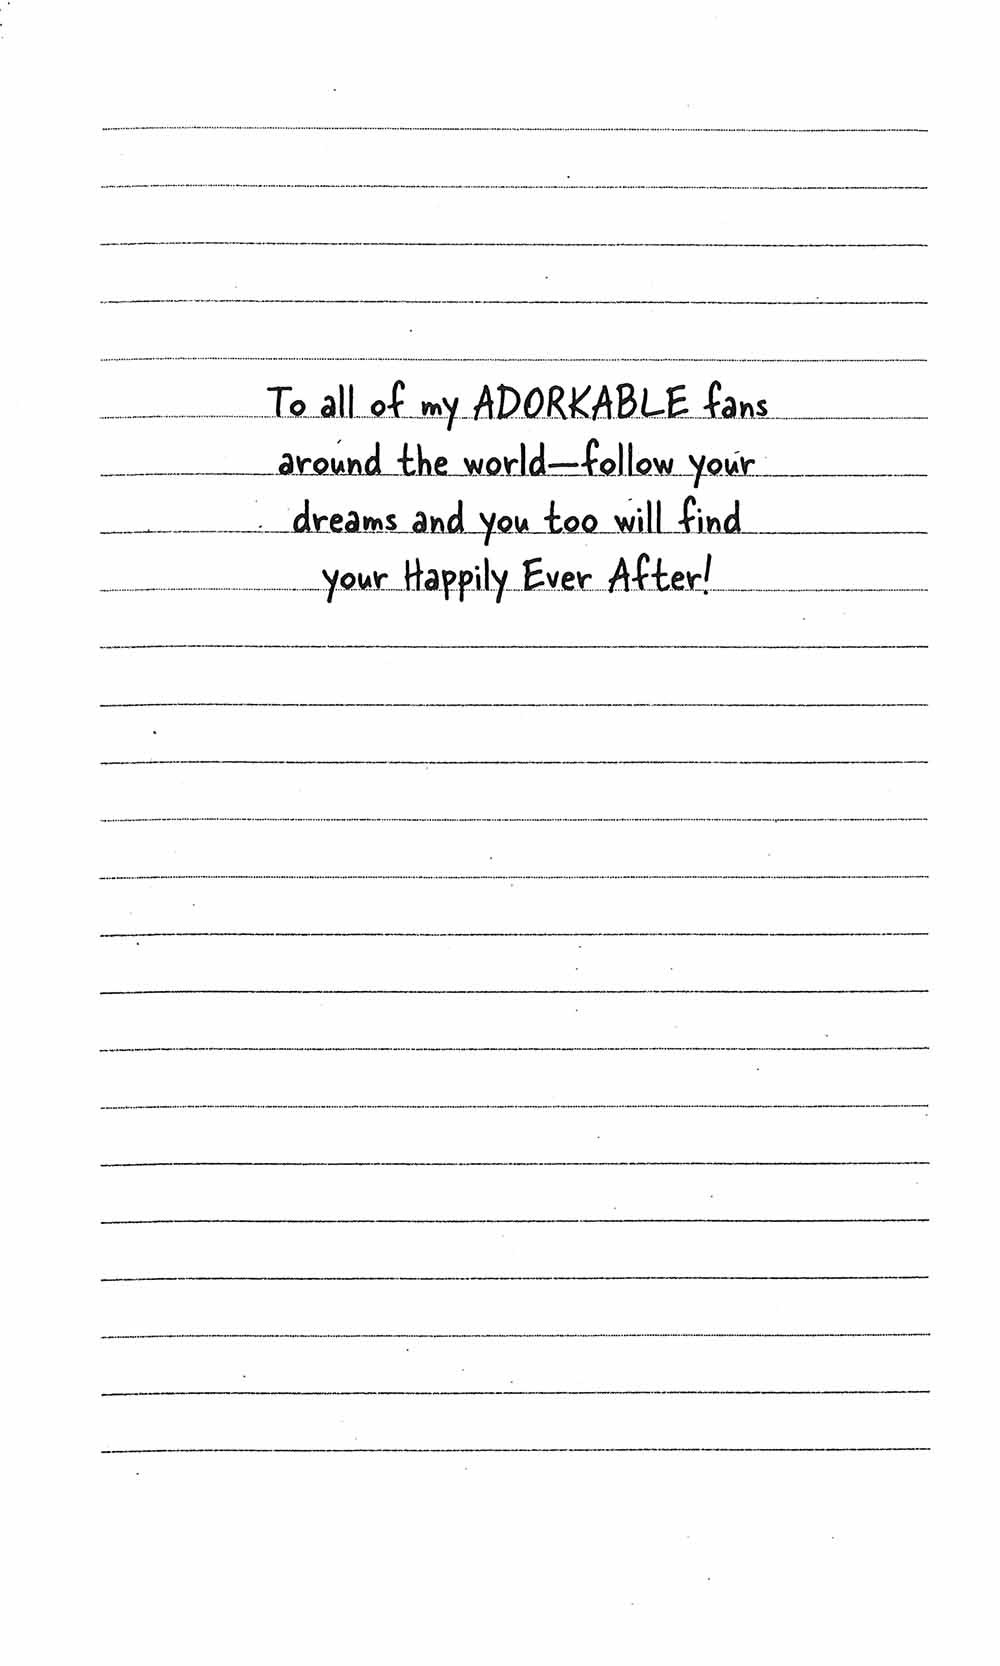 To all of my ADORKABLE fans
around the world—follow your
dreams and you too will find
your Happily Ever After!